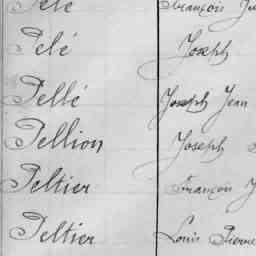 Pelé François
Pelé Joseph
Pellé Joseph Jean
Pellion Joseph
Peltier François
Peltier Louis Pierre